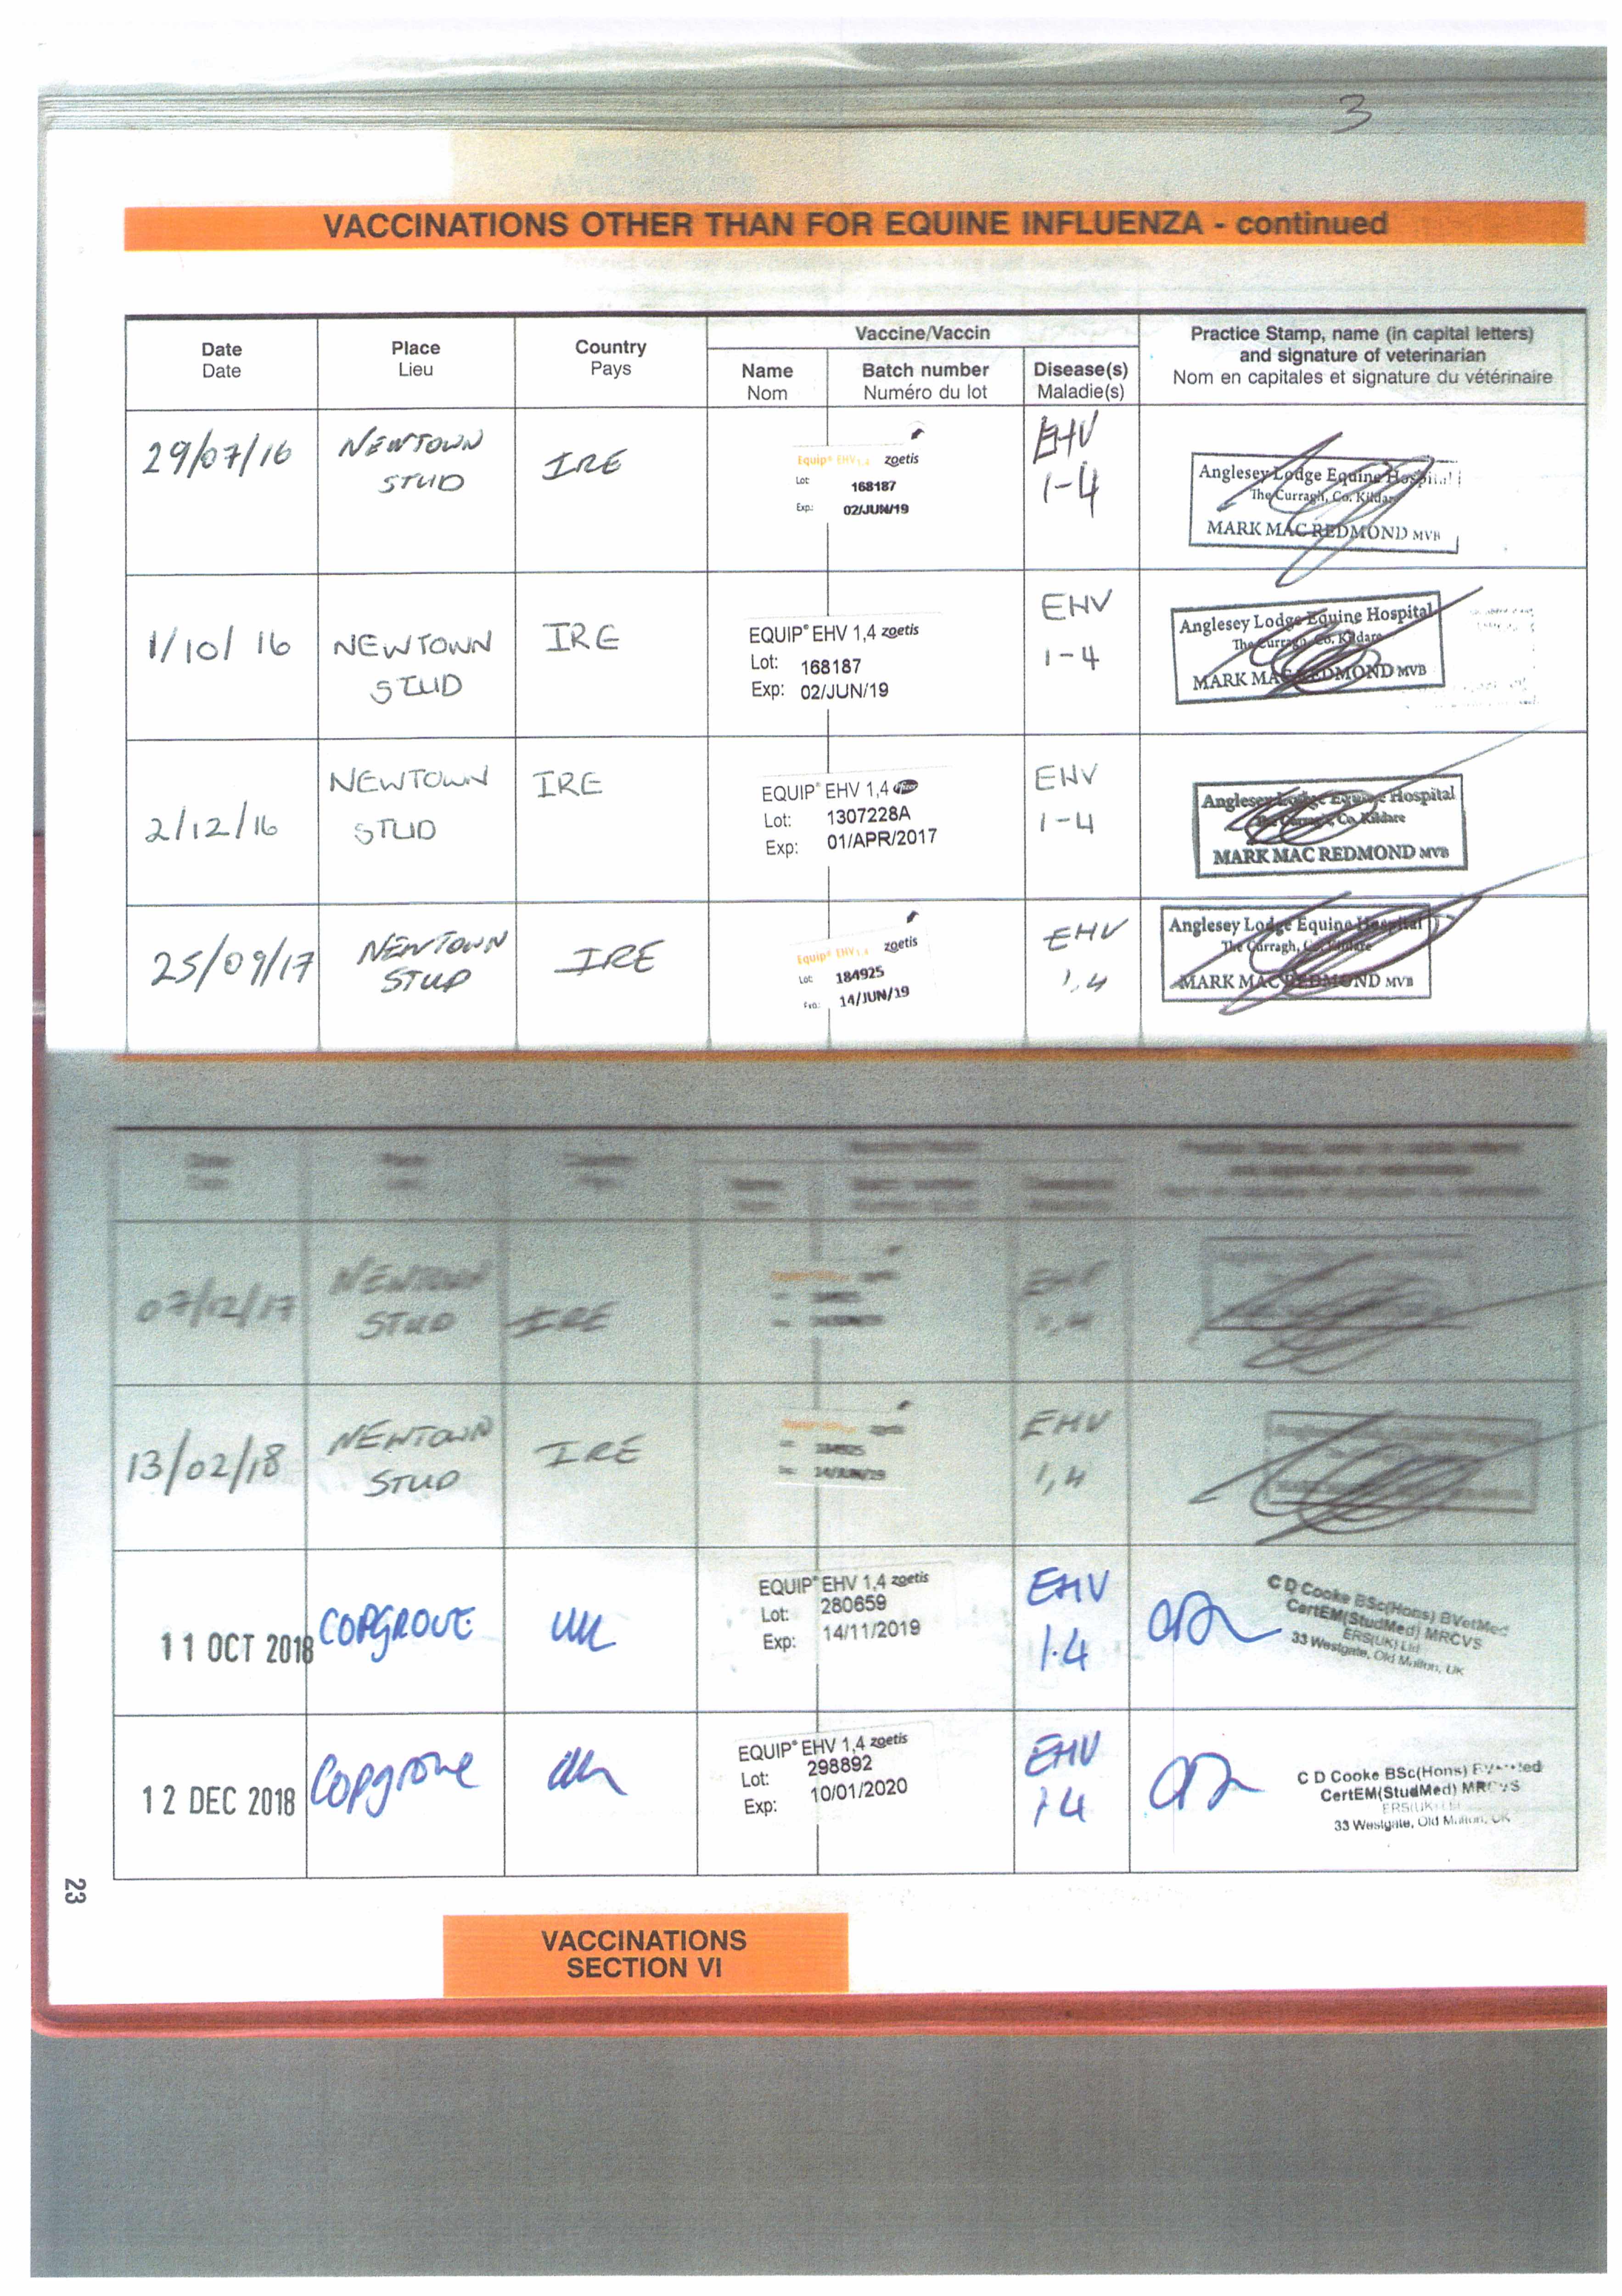 3
VACCINATIONS OTHER THAN FOR EQUINE INFLUENZA - continued
Date
Date
Place
Lieu
Country
Pays
Vaccine/Vaccin
Name
Nom
Batch number
Numéro du lot
Disease(s)
Maladie(s)
Practice Stamp, name (in capital letters)
and signature of veterinarian
Nom en capitales et signature du vétérinaire
29/07/16
NEWTOWN
STUD
IRE
Equip® EHV 1,4 zoetis
Lot: 168187
Exp: 02/JUN/19
EHV
1-4
Anglesey Lodge Equine Hospital
The Curragh, Co. Kildare
MARK MAC REDMOND MVB
1/10/16
NEWTOWN
STUD
IRE
EQUIP® EHV 1,4 zoetis
Lot: 168187
Exp: 02/JUN/19
EHV
1-4
Anglesey Lodge Equine Hospital
The Curragh, Co. Kildare
MARK MAC REDMOND MVB
2/12/16
NEWTOWN
STUD
IRE
EQUIP® EHV 1,4 Pfizer
Lot: 1307228A
Exp: 01/APR/2017
EHV
1-4
Anglesey Lodge Equine Hospital
The Curragh, Co. Kildare
MARK MAC REDMOND MVB
25/09/17
NEWTOWN
STUD
IRE
Equip® EHV 1,4 zoetis
Lot: 184925
Exp: 14/JUN/19
EHV
1,4
Anglesey Lodge Equine Hospital
The Curragh, Co. Kildare
MARK MAC REDMOND MVB
07/12/17
NEWTOWN
STUD
IRE
EHV
1,4
13/02/18
NEWTOWN
STUD
IRE
184925
14/JUN/19
EHV
1,4
11 OCT 2018
COPGROVE
UK
EQUIP® EHV 1,4 zoetis
Lot: 280659
Exp: 14/11/2019
EHV
1.4
C D Cooke BSc(Hons) BVetMed
CertEM(StudMed) MRCVS
ERS(UK) Ltd
33 Westgate, Old Malton, UK
12 DEC 2018
Copgrove
UK
EQUIP® EHV 1,4 zoetis
Lot: 298892
Exp: 10/01/2020
EHV
1.4
C D Cooke BSc(Hons) BVetMed
CertEM(StudMed) MRCVS
ERS(UK) Ltd
33 Westgate, Old Malton, UK
23
VACCINATIONS
SECTION VI